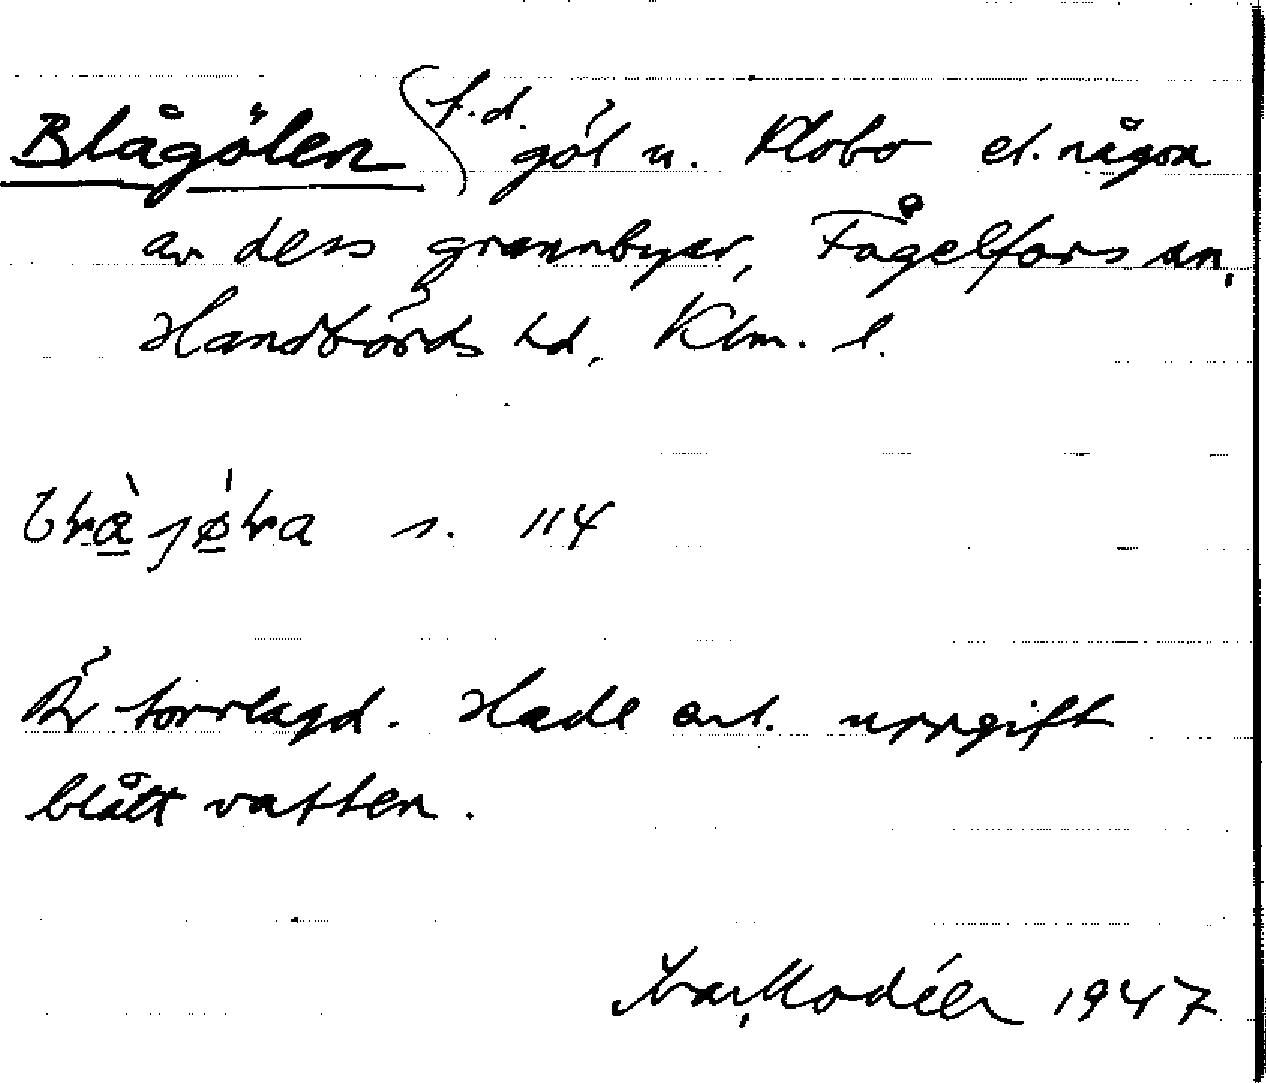 Blågölen f.d. göl u. Klobo el. någon
av dess grannbyar, Fågelfors sn,
Handbörds hd, Klm. l.
s. 114
Är torrlagd. Hade enl. uppgift
blått vatten.
Ivar Modéer 1947